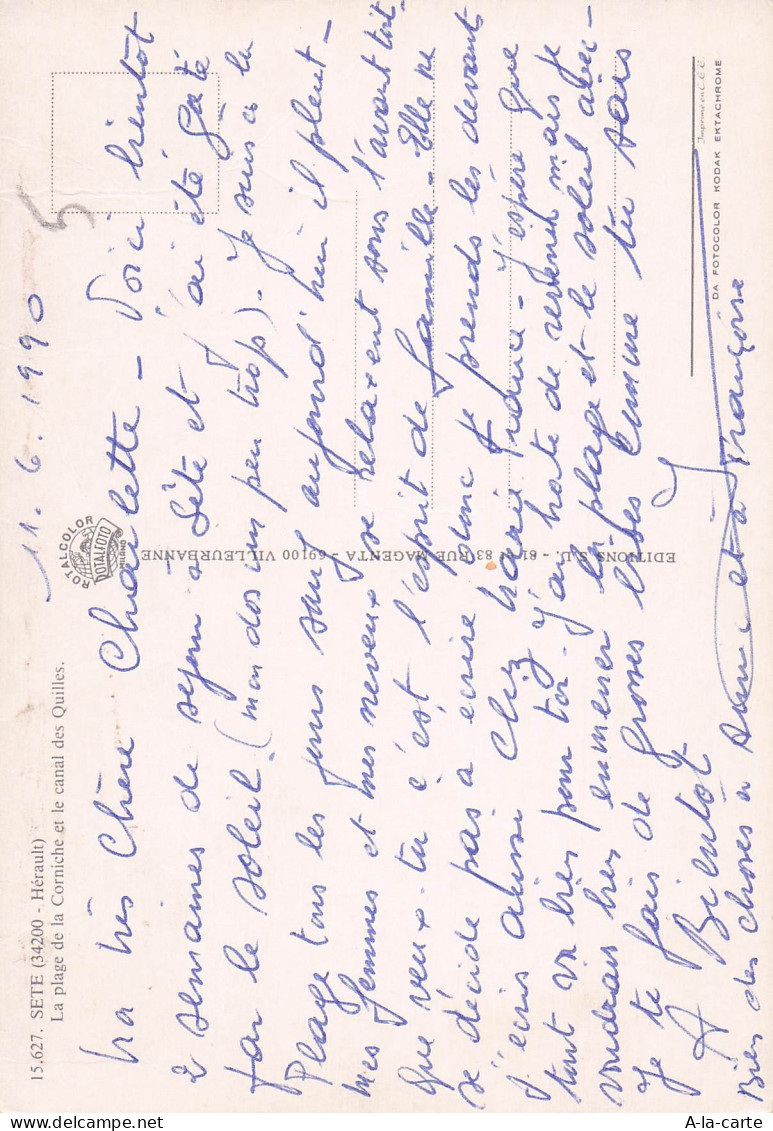 15.627. SETE (34200 - Hérault)
La plage de la Corniche et le canal des Quilles.
11.6.1990
5
ROTALCOLOR
ROTALFOTO
MILANO
Ma très Chère Charlette - Voici bientôt
2 semaines de séjour à Sète et j'ai été gaté
par le soleil. (mon dos un peu trop). Je suis à la
Plage tous les jours sauf aujourd'hui il pleut -
mes femmes et mes neveux se relaxent sous l'avant toit -
Que veux-tu c'est l'esprit de famille - Elle ne
se décide pas à écrire donc je prends les devant
J'écris aussi chez Marie France - J'espère que
tout va très pour toi. J'ai hate de revenir mais je
voudrais bien emmener la plage et le soleil avec -
Je te fais de grosses bises comme tu sais
A Bientôt
Bien des choses à et à Françoise
EDITIONS S.L. - 81 et 83 RUE MAGENTA - 69100 VILLEURBANNE
Imprimé en C.E.E.
DA FOTOCOLOR KODAK EKTACHROME
A-la-carte